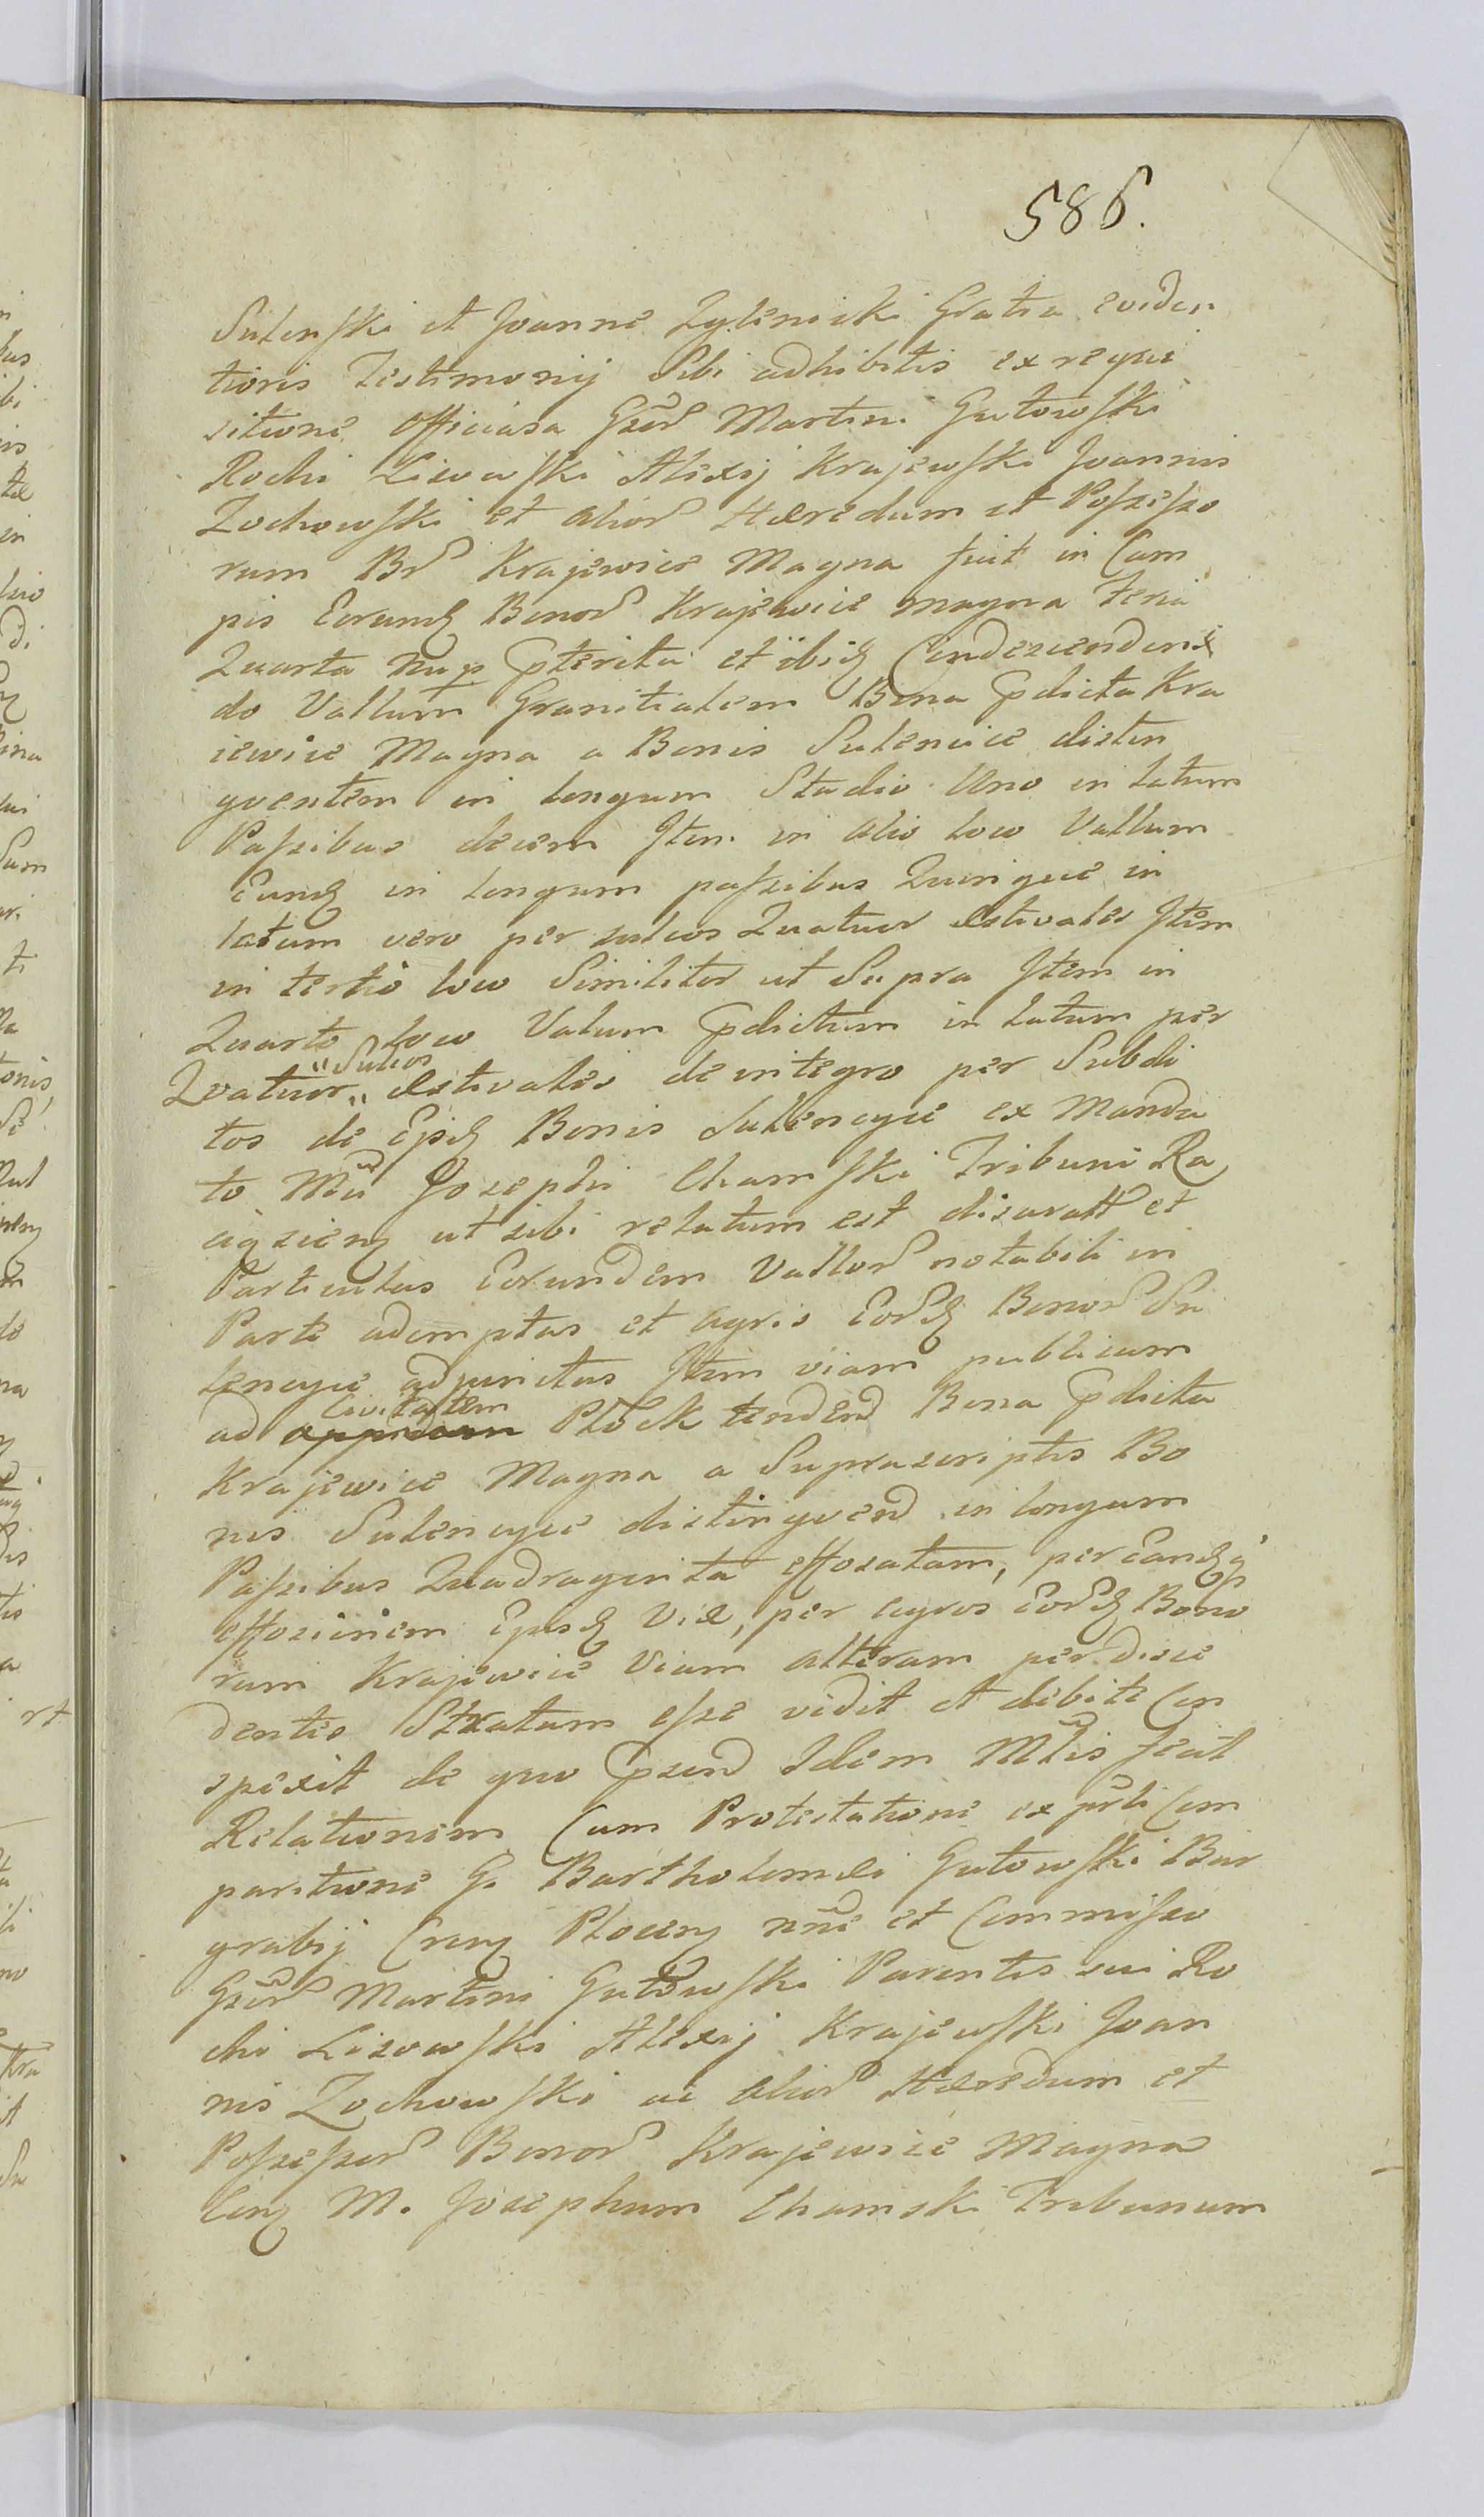 586.
Sulenski et Joanne Zglenicki Gratia eviden
tioris Testimonij Sibi adhibitis ex requi
sitione officiosa Gsōr Martini Gutowski
Rochi Lisowski Alexij Krajewski Joannis
Zochowski et alior Hæredum et Possesso
rum Br Krajewice Magna fuit in Cam
pis Eorund Bonor Krajewice magna Feria
Quarta nup pterita et ibid Condescenden
do Vallum Granitialem Bona pdicta Kra
iewice Magna a Bonis Sulencice distin
gventem in longum Stadio Uno in latum
Passibus decem Item in alio loco Vallum
Eund in longum passibus Quinque in
latum vero per sulcos Quatuor æstivales Item
in tertio loco Similiter ut Supra Item in
Quarto loco Valum pdictum in latum per
Quatuor "Sulcos" æstivales de integro per Subdi
tos de Epsd Bonis Sulencyce ex Manda
to Mci Josephi Chamski Tribuni Ra
ciązieng ut sibi relatum est disaratt et
Particulas Eorundem Vallor notabili in
Parte ademptas et agris Eord Bonor Su
lencyce adjunctas Item viam publicam
ad oppidum Civitatem Płock tendend Bona pdicta
Krajewice Magna a Suprascriptis Bo
nis Sulencyce distingvend in longum
Passibus Quadraginta effosatam, per Eandq
effosionem Epsd Viæ, per agros Eord Bono
rum Krajewice Viam alteram per disce
dentes Stratum esse vidit et debite Con
spexit de quo psend Idem Mlis fecit
Relationem Cum Protestatione ex psnli Com
paritione G. Bartholomæi Gutowski Bur
grabij Creng Płoceng nne et Commisso
Gsōr Martini Gutowski Parentis sui Ro
chi Lisowski Alexij Krajewski Joan
nis Zochowski ac alior Hæredum et
Possessor Bonor Krajewice Magna
Cong M. Josephum Chamski Tribunum